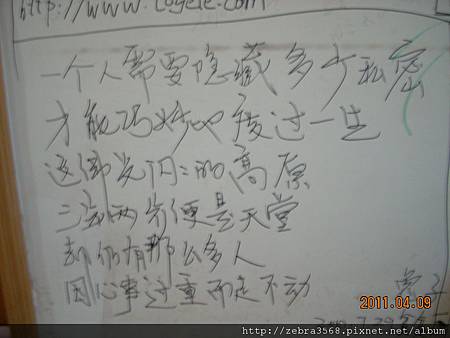 http://www.cogele.com
一个人需要隐藏多少私密
才能巧妙地度过一生
这佛光闪闪的高原
三步两步便是天堂
却仍有那么多人
因心事过重而走不动
2011.04.09
http://zebra3568.pixnet.net/album